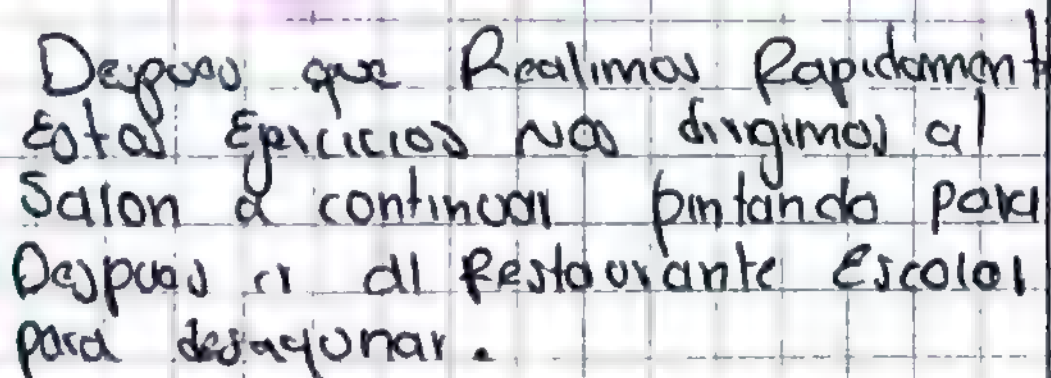 Despues que Realimos Rapidament
Estos Ejercicios Nos dirigimos al
Salon a continuar pintando para
Despues ir al Restaurante Escolar
para desayunar.